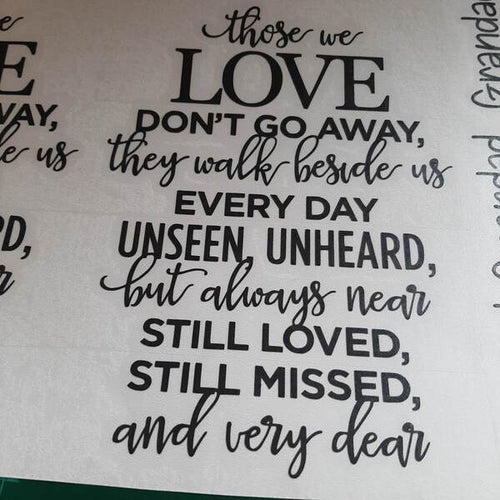 those we
LOVE
DON'T GO AWAY,
they walk beside us
EVERY DAY
UNSEEN, UNHEARD,
but always near
STILL LOVED,
STILL MISSED,
and very dear